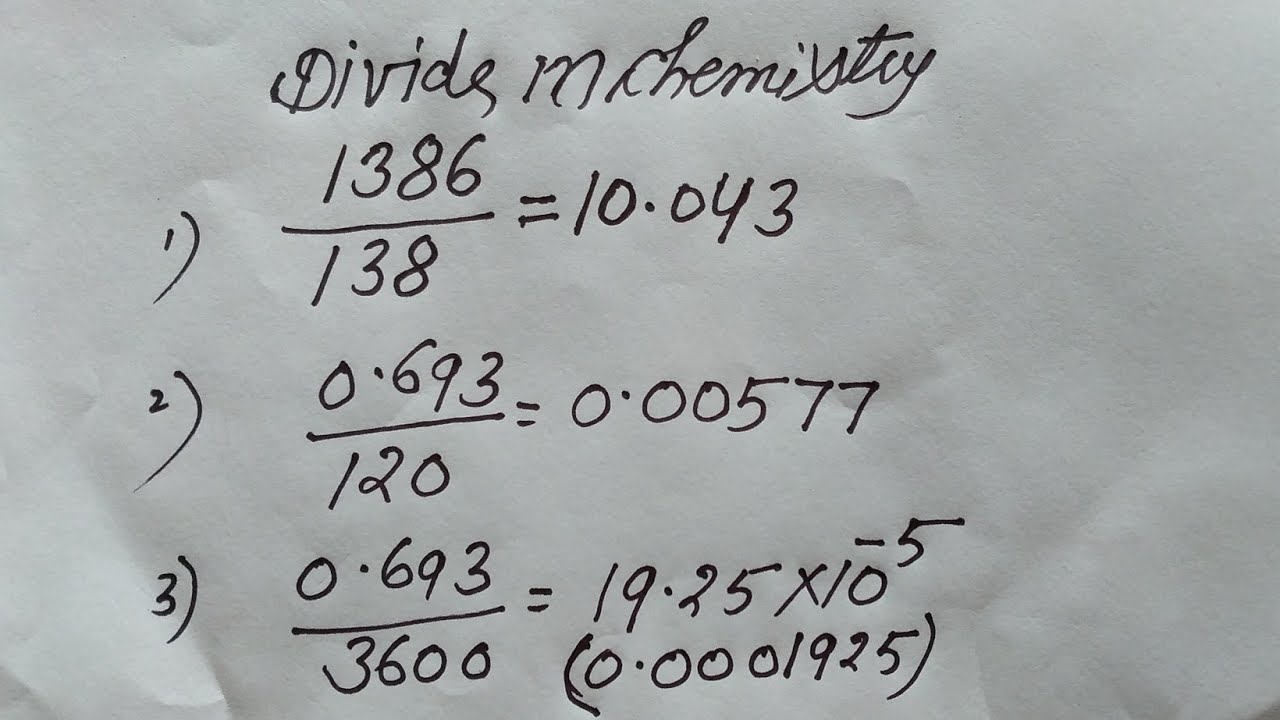 Divide in chemistry
1) 1386/138 = 10.043
2) 0.693/120 = 0.00577
3) 0.693/3600 = 19.25 × 10⁻⁵
(0.0001925)